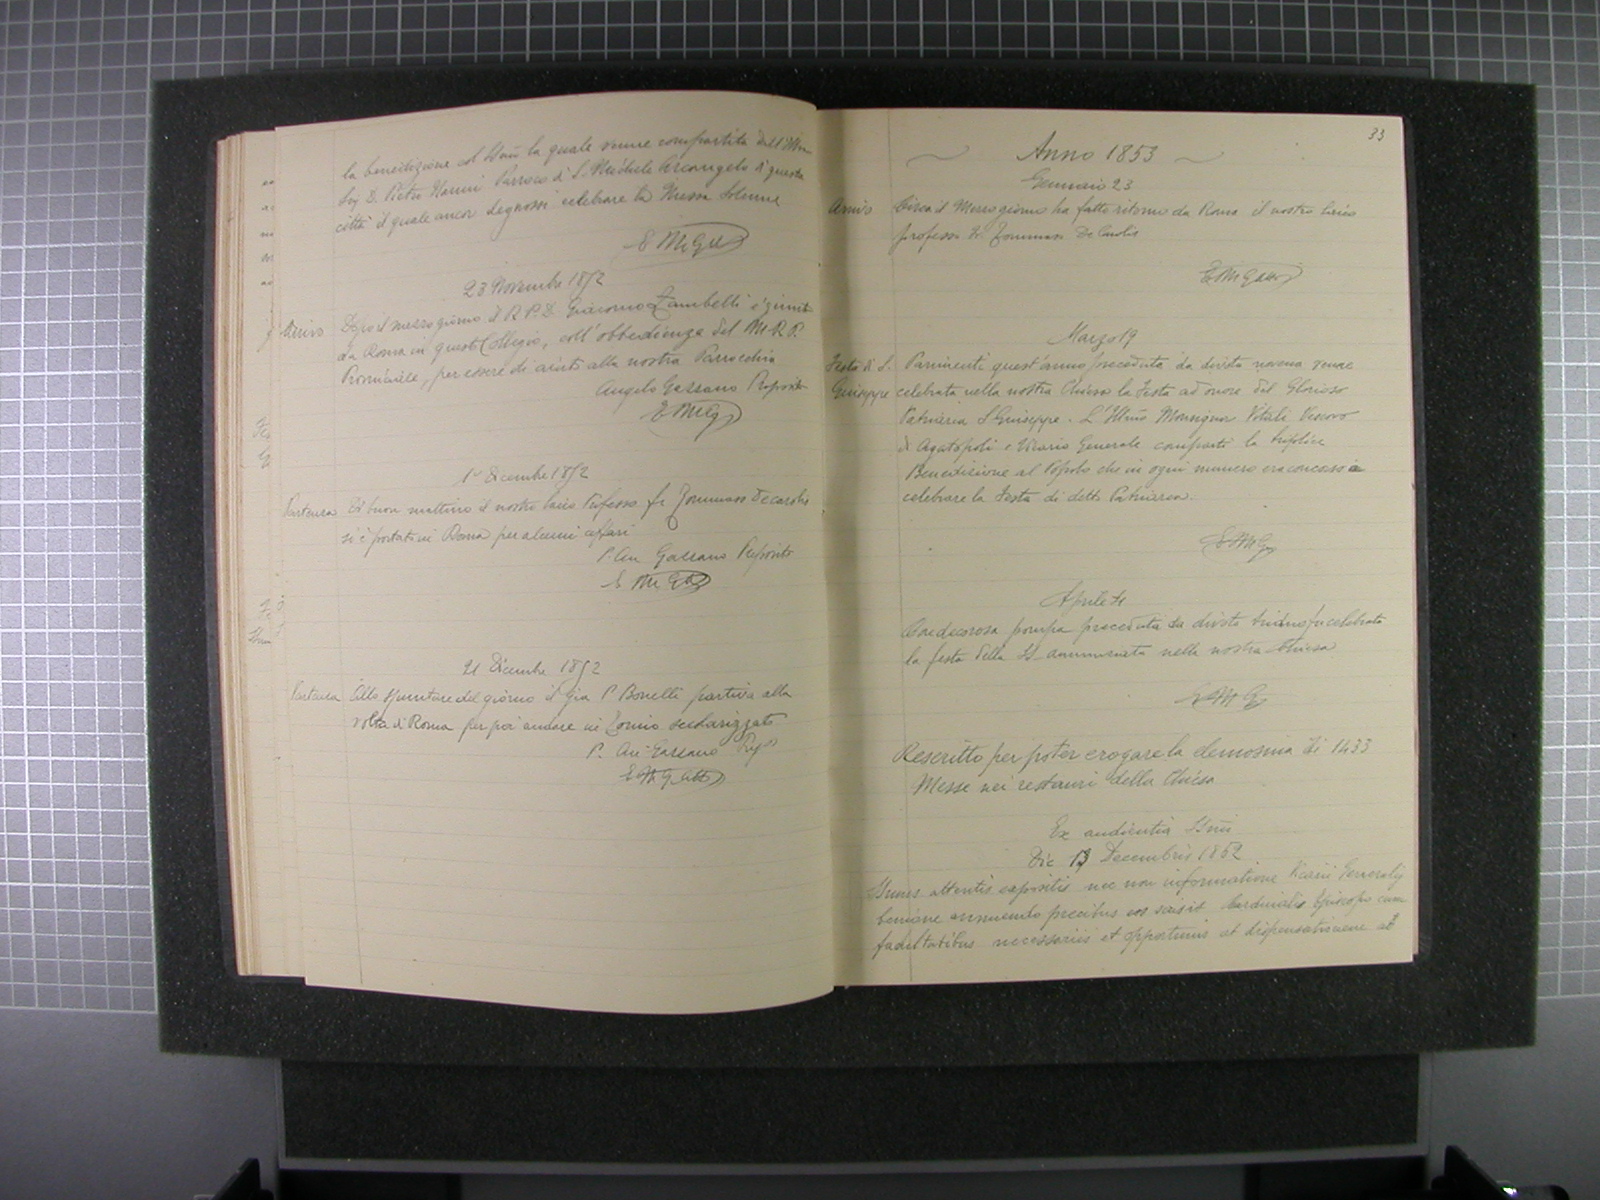 la benedizione col Ssmo la quale venne compartita dall'Illmo
Sig D. Pietro Nannii Parroco di S. Michele Arcangelo di questa
città il quale ancor degnossi celebrare la Messa Solenne
23 Novembre 1852
Arrivo
Dopo il mezzogiorno il R. P. D. Giacomo Zambelli è giunto
da Roma in questo Collegio, coll'obbedienza del M. R. P.
Provinciale, per essere di aiuto alla nostra Parrocchia
Angelo Gassano Preposito
1° Dicembre 1852
Partenza
Di buon mattino il nostro laico Professo fr Tommaso Decarolis
si è portato in Roma per alcuni affari
P. An. Gassano Preposito
21 Dicembre 1852
Partenza
Allo spuntare del giorno il già P Bonelli partiva alla
volta di Roma per poi andare in Torino secolarizzato
P. An. Gassano Prep°
33
Anno 1853
Gennaio 23
Arrivo
Circa il Mezzogiorno ha fatto ritorno da Roma il nostro laico
professo Fr. Tommaso De Carolis
Marzo 19
Festa di S.
Giuseppe
Parimenti quest'anno preceduta da divota novena venne
celebrata nella nostra Chiesa la festa ad onore del Glorioso
Patriarca S Giuseppe. L'Illmo Monsignor Vitali Vescovo
di Agatopoli e Vicario Generale compartì la triplice
Benedizione al Popolo che in ogni numero era concorso a
celebrare la festa di detto Patriarca.
Aprile 4
Con decorosa pompa preceduta da divoto triduo fu celebrata
la festa della SS annunziata nella nostra Chiesa
Rescritto per poter erogare la elemosina di 1433
Messe nei restauri della Chiesa
Ex audientia SSmi
Die 13 Decembris 1852
SSmus attentis expositis nec non informatione Vicarii Generalis
benigne annuendo precibus eos Cardinalis Episcopo cum
facultatibus necessariis et opportunis at dispensationem ab